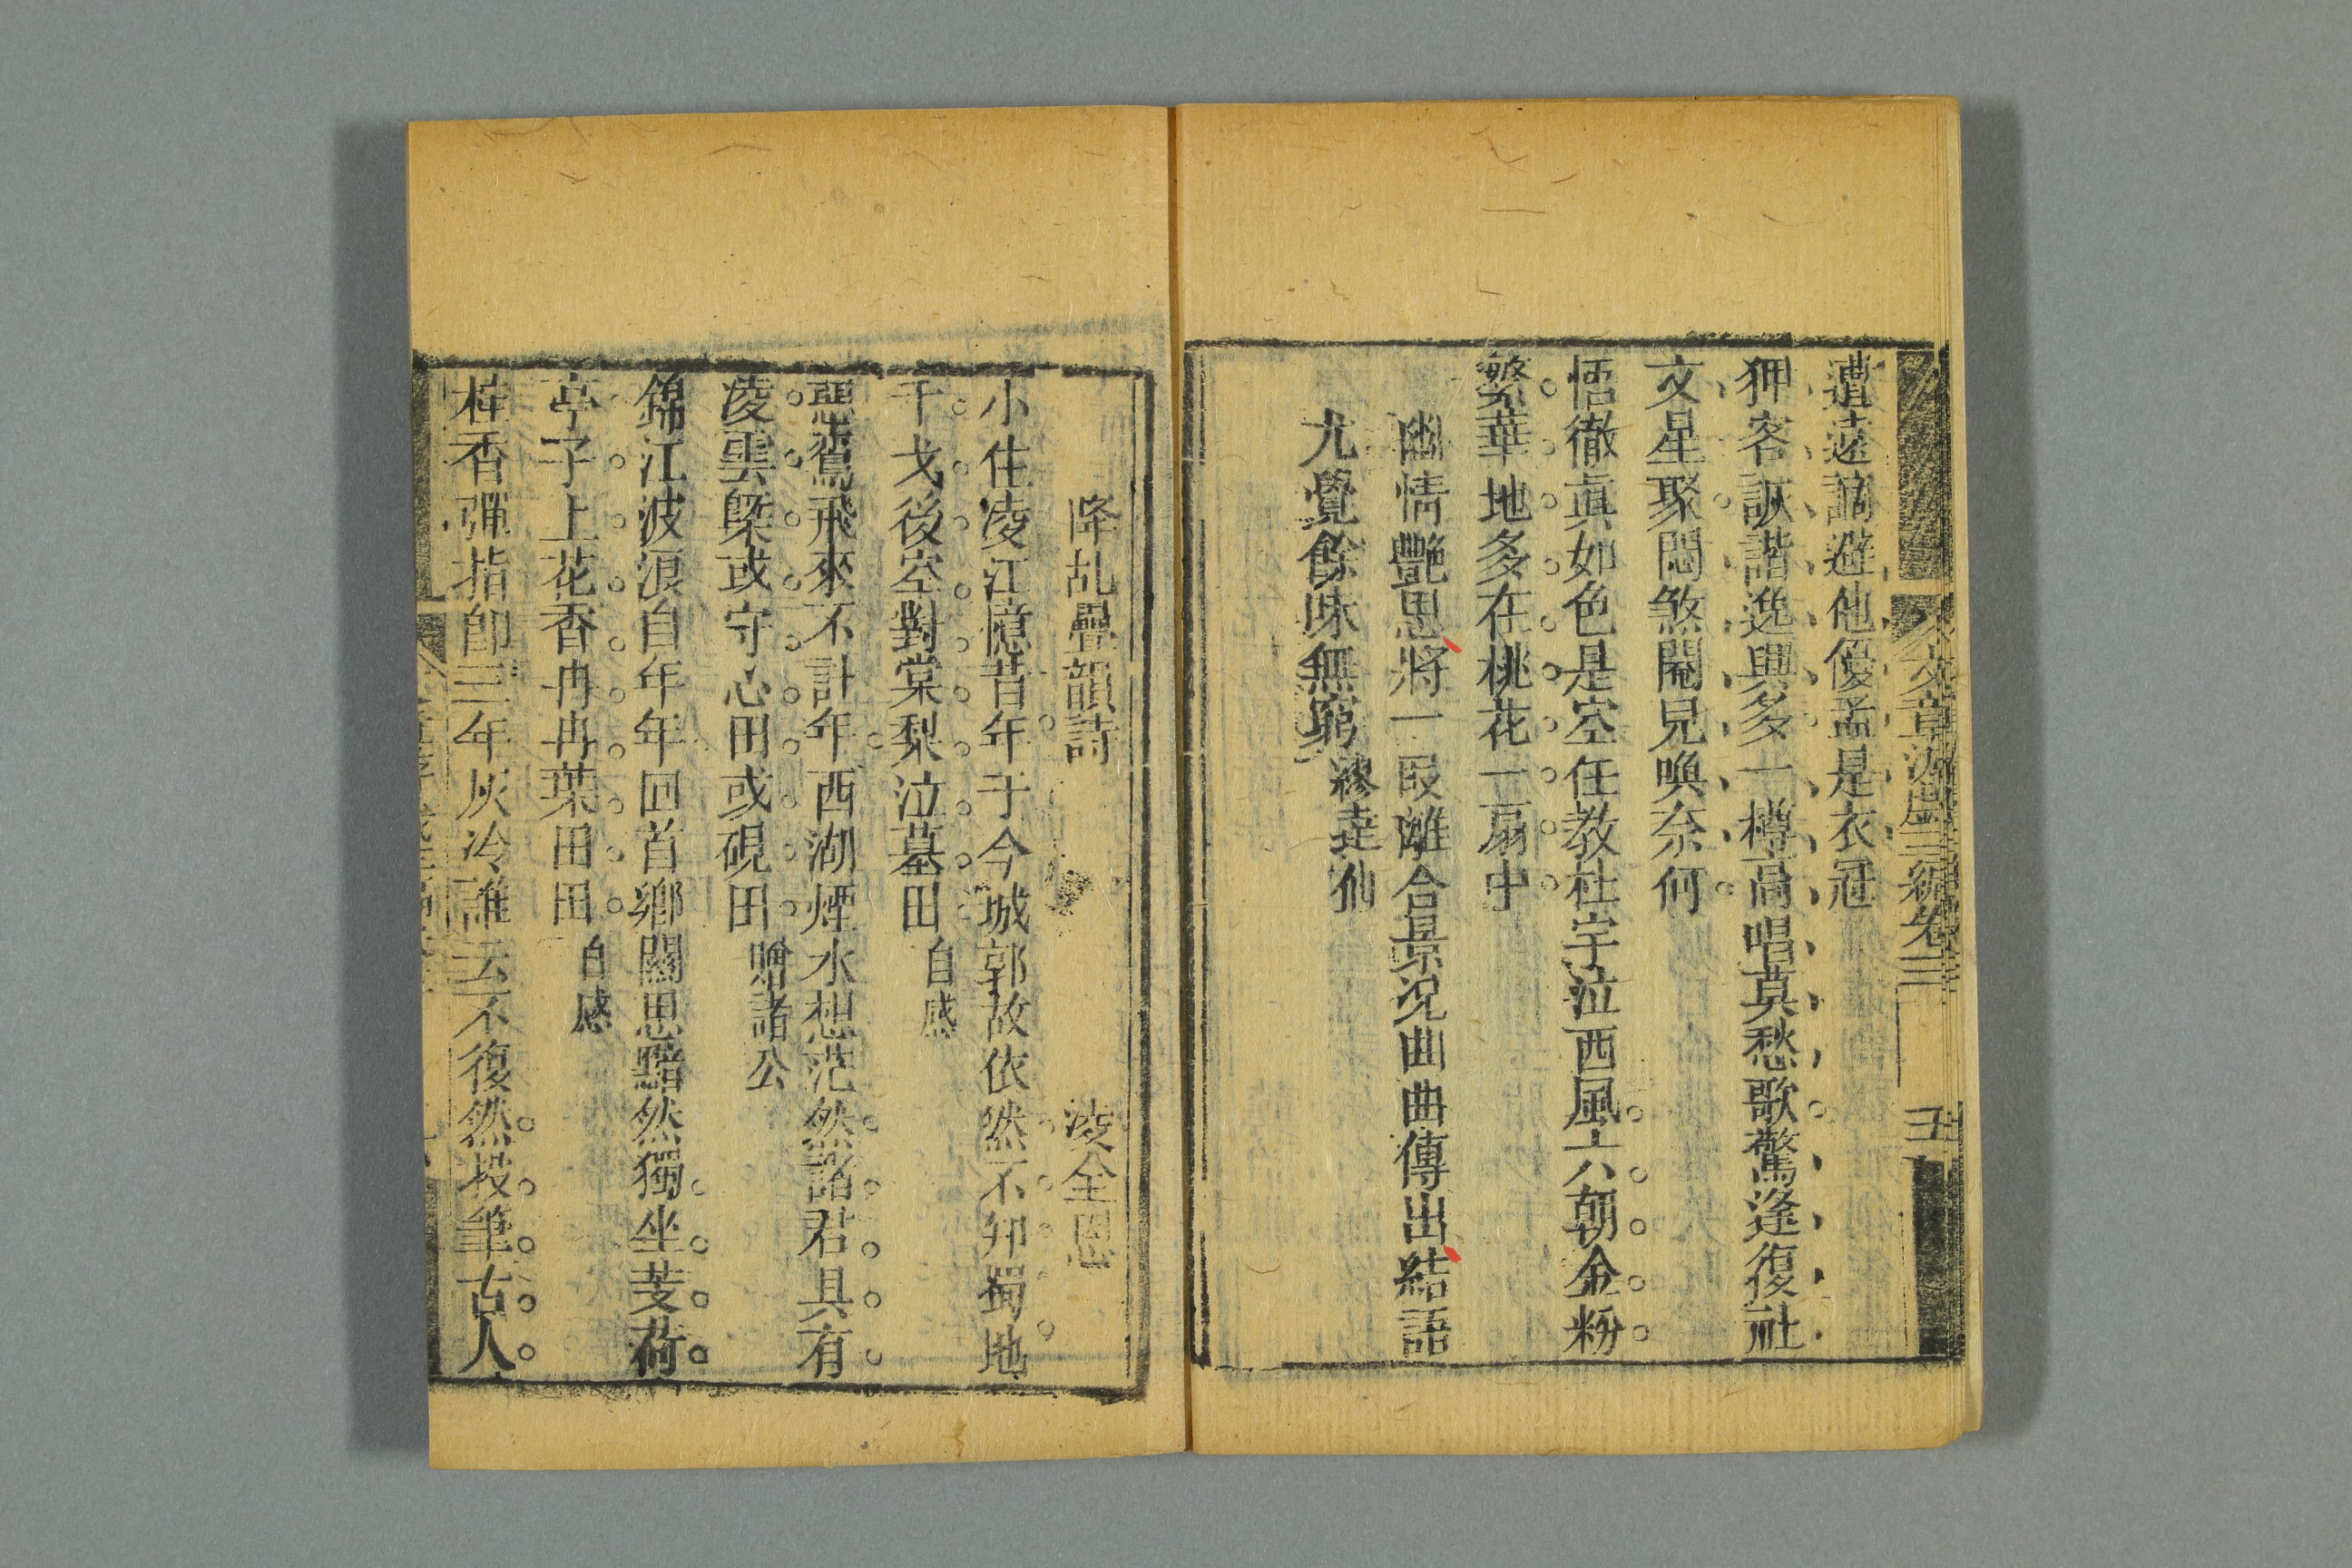 文章游戲三編卷三
五
遭遠謫避他優孟是衣冠
狎客詼諧逸興多一樽高唱莫愁歌驚逢復社
文星聚悶煞閹兒喚奈何
悟徹眞如色是空任教杜宇泣西風六朝金粉
繁華地多在桃花一扇中
幽情艷思將一段離合景況曲曲傳出結語
尤覺餘味無窮 繆蓮仙
降乩疊韻詩 凌全恩
小住凌江憶昔年于今城郭故依然不卯蜀地
干戈後空對棠梨泣墓田 自感
慝鴛飛來不計年西湖煙水想茫然諸君具有
凌雲槩或守心田或硯田 贈諸公
錦江波浪自年年回首鄉關思黯然獨坐芰荷
亭子上花香冉冉葉田田 自感
梓香彈指卽三年灰冷誰云不復然投筆古人